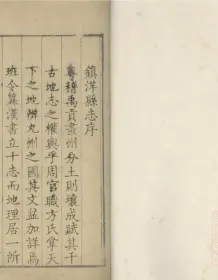 鎮洋縣志序
粤稽禹貢畫州分土則壤成賦其千
古地志之權輿乎周官職方氏掌天
下之地辨九州之國其文益加詳焉
班令纂漢書立十志而地理居一所